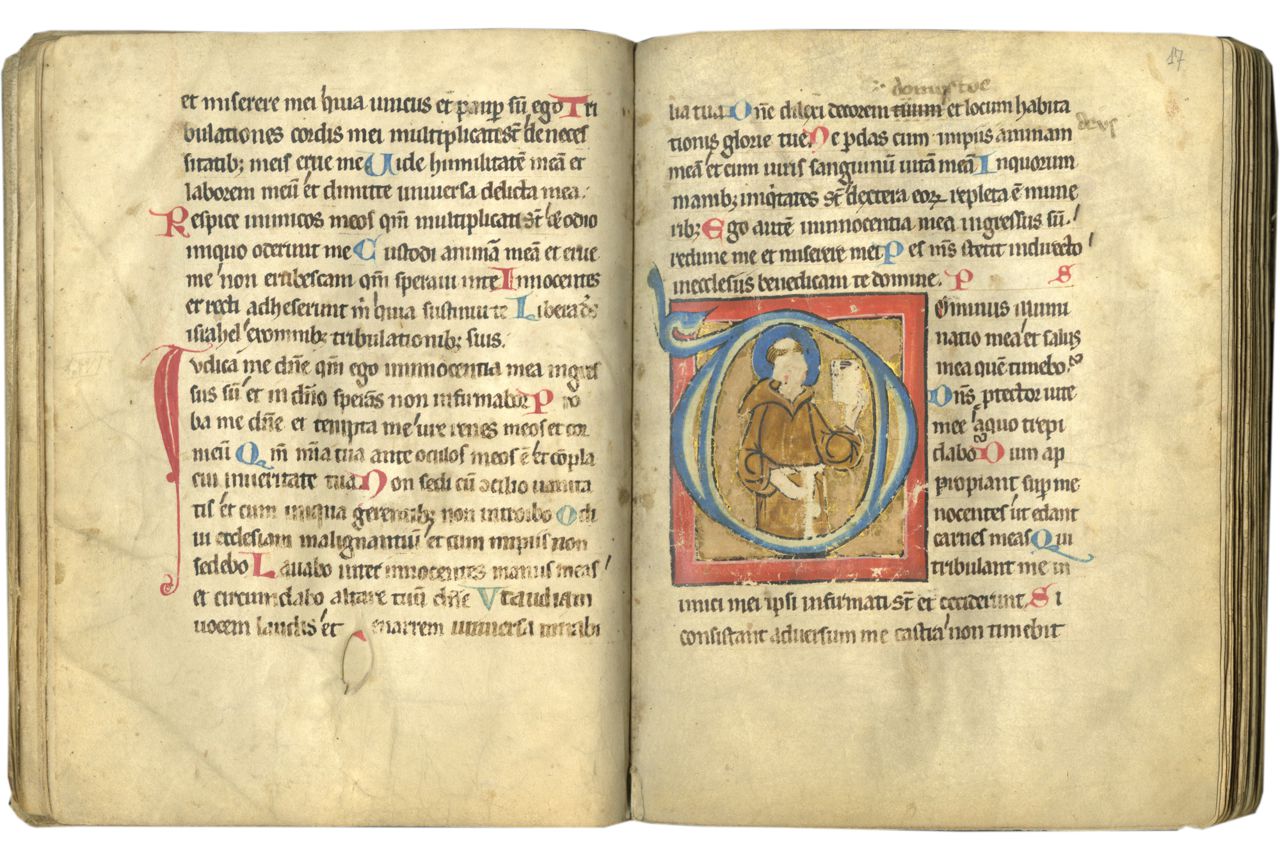 et miserere mei q'uia unicus et paup sū ego Tri
bulationes cordis mei multiplicate st' de neces
sitatib; meis erue me Uide humilitatē meā et
laborem meū et dimitte universa delicta mea.
Respice inimicos meos qm̄ multiplicati st' et odio
iniquo oderunt me Custodi animā meā et erue
me non erubescam qm̄ speravi in te Innocentes
et recti adheserunt m̄ quia sustinui te Libera ds̄
israhel ex omnib; tribulationib; suis.
Iudica me dn̄e qm̄ ego in innocentia mea ingres
sus sū et in dn̄o sperans non infirmabor Pro
ba me dn̄e et tempta me ure renes meos et cor
meū Qm̄ mīa tua ante oculos meos ē et cōpla
cui in veritate tua Non sedi cū cōcilio vanita
tis et cum iniqua gerentib; non introibo Odi
vi ecclesiam malignantiū et cum impiis non
sedebo Lavabo inter innocentes manus meas
et circumdabo altare tuū dn̄e Ut audiam
vocem laudis et enarrem universa mirabi
domus tue
17
lia tua Dn̄e dilexi decorem tuum et locum habita
tionis glorie tue Ne pdas cum impiis animam
deus
meā et cum viris sanguinū vitā meā In quorum
manib; iniq'tates st' dextera eoꝝ repleta ē mune
rib; Ego autē in innocentia mea ingressus sū.
redime me et miserere mei Pes m̄s stetit in directo
in ecclesiis benedicam te domine. P S
Dominus illumi
natio mea et salus
mea quē timebo.
Dn̄s ptector vite
mee a quo trepi
dabo Dum ap
propiant sup me
nocentes ut edant
carnes meas Qui
tribulant me in
imici mei ipsi infirmati st' et ceciderunt Si
consistant adversum me castra non timebit